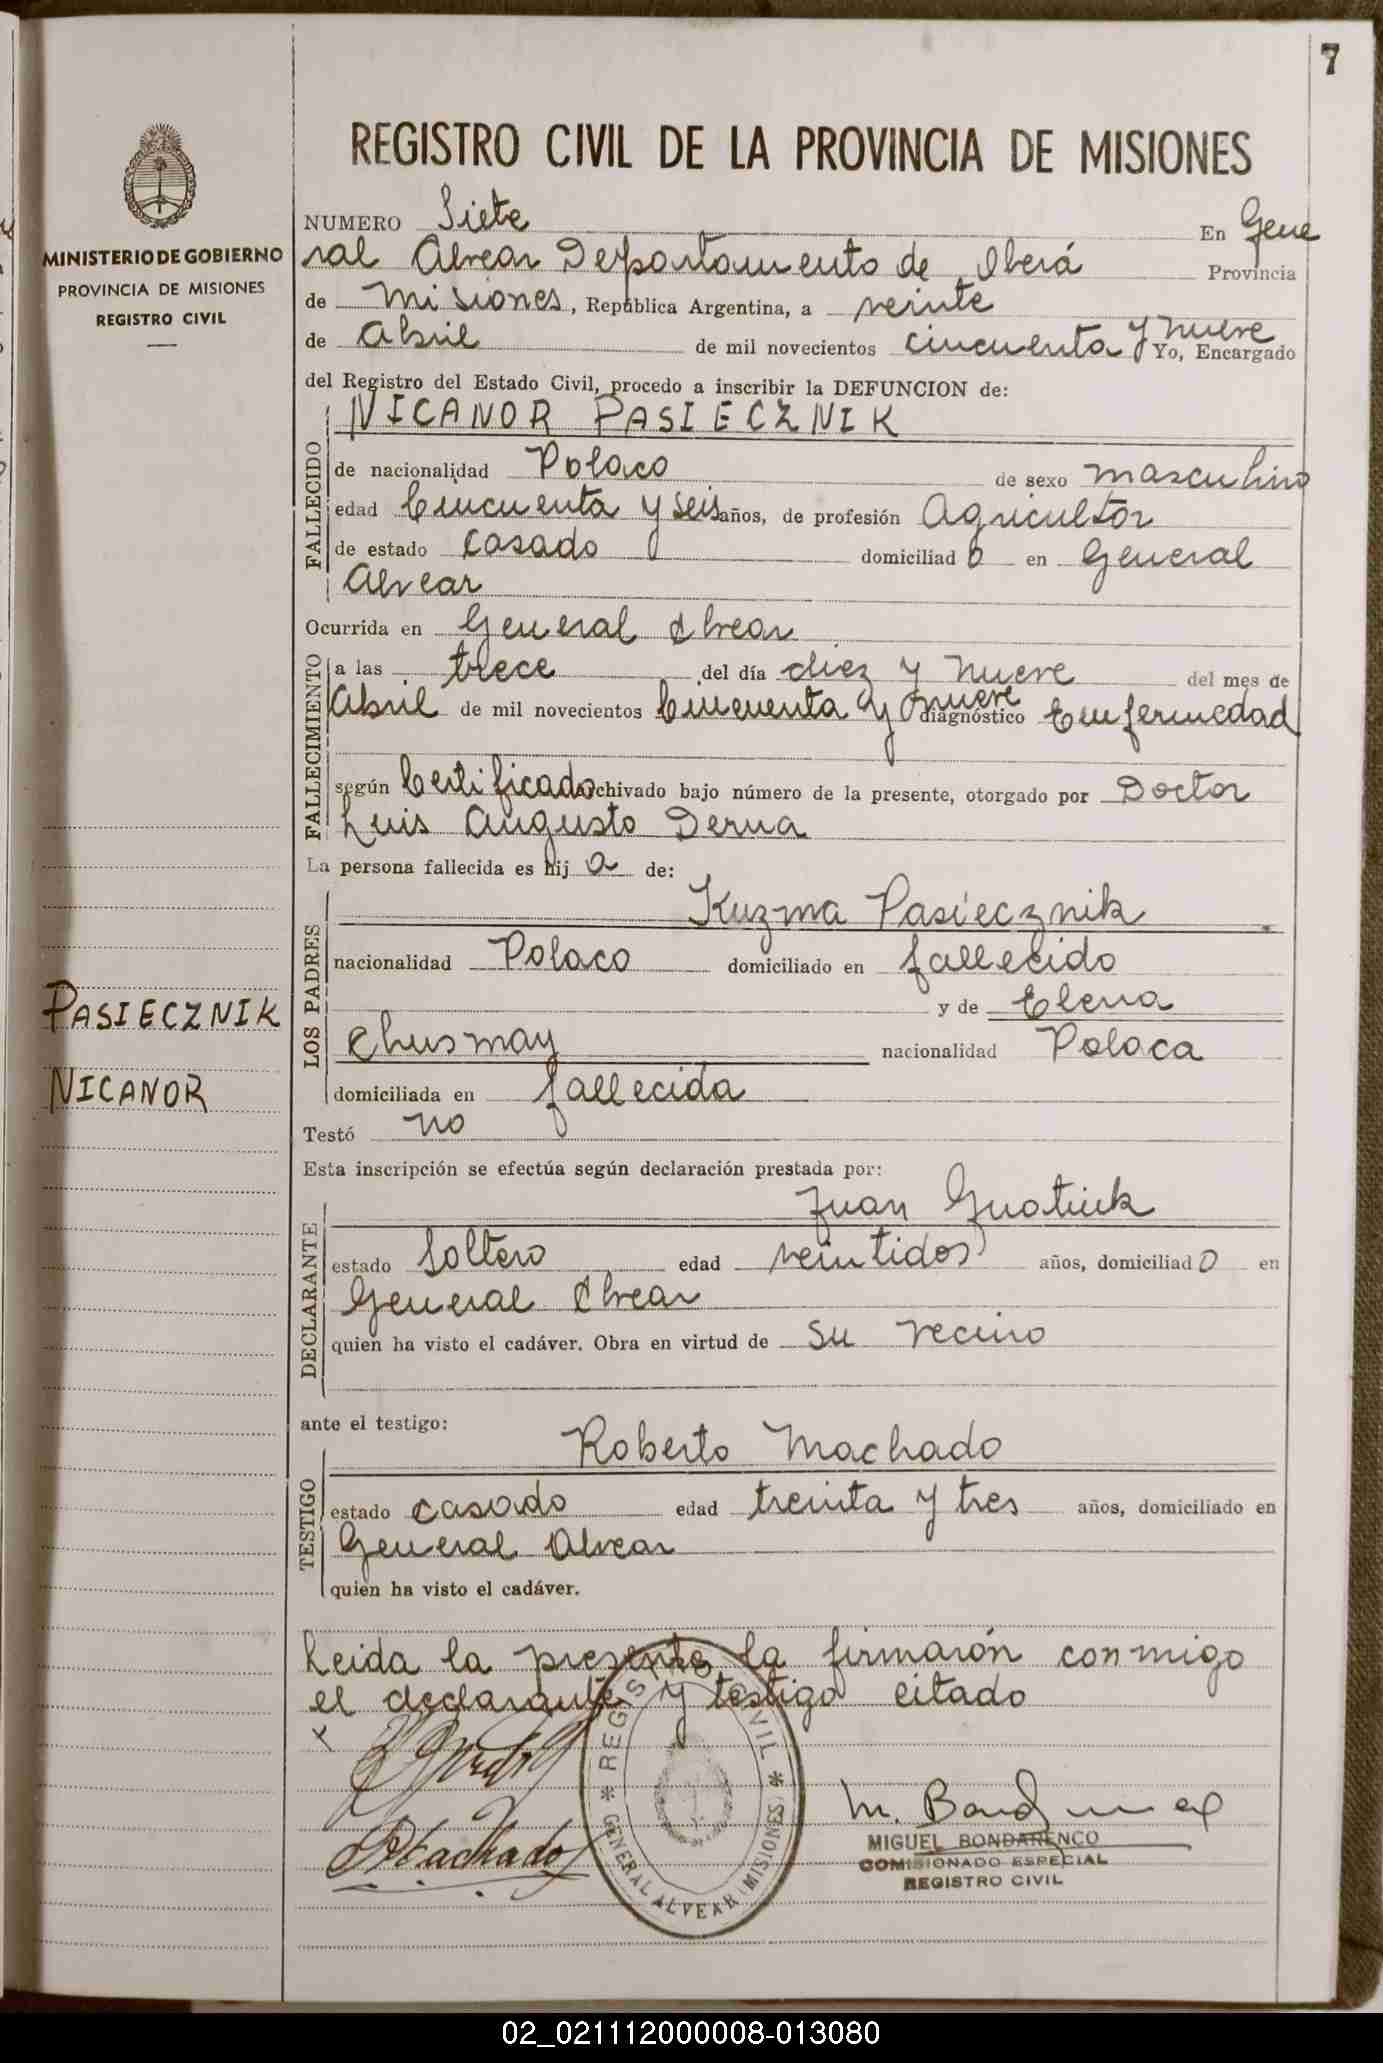 7
REGISTRO CIVIL DE LA PROVINCIA DE MISIONES
MINISTERIO DE GOBIERNO
PROVINCIA DE MISIONES
REGISTRO CIVIL
NUMERO Siete En Gene
ral Alvear Departamento de Oberá Provincia
de Misiones, República Argentina, a veinte
de Abril de mil novecientos cincuenta y nueve Yo, Encargado
del Registro del Estado Civil, procedo a inscribir la DEFUNCION de:
NICANOR PASIECZNIK
FALLECIDO
de nacionalidad Polaco de sexo masculino
edad Cincuenta y seis años, de profesión Agricultor
de estado casado domiciliad o en General
Alvear
Ocurrida en General Alvear
FALLECIMIENTO
a las trece del día diez y nueve del mes de
Abril de mil novecientos Cincuenta y nueve diagnóstico Enfermedad
según Certificado archivado bajo número de la presente, otorgado por Doctor
Luis Augusto Derna
La persona fallecida es hij o de:
LOS PADRES
Kuzma Pasiecznik
nacionalidad Polaco domiciliado en fallecido
y de Elena
Chusmay nacionalidad Polaca
domiciliada en fallecida
PASIECZNIK
NICANOR
Testó no
Esta inscripción se efectúa según declaración prestada por:
DECLARANTE
Juan
estado Soltero edad veintidos años, domiciliad o en
General Alvear
quien ha visto el cadáver. Obra en virtud de su vecino
ante el testigo:
TESTIGO
Roberto Machado
estado casado edad treinta y tres años, domiciliado en
General Alvear
quien ha visto el cadáver.
Leida la presente la firmarón conmigo
el declarante y testigo citado
REGISTRO CIVIL
GENERAL ALVEAR (MISIONES)
RMachado
M. Bondarenco
MIGUEL BONDARENCO
COMISIONADO ESPECIAL
REGISTRO CIVIL
02_021112000008-013080